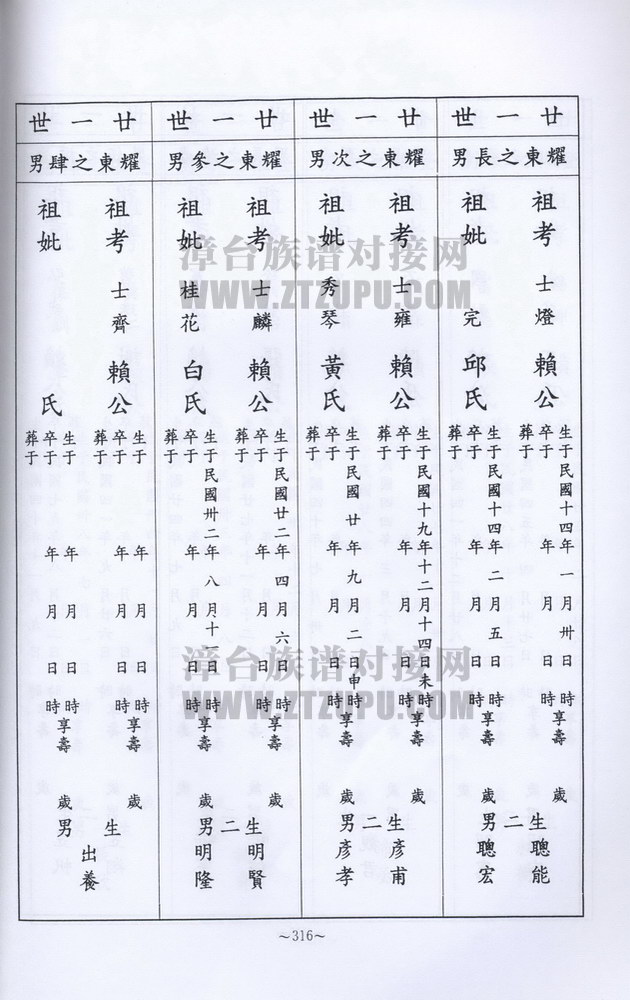 廿一世
耀東之長男
祖考 士燈 賴公
生于民國十四年一月卅日 時享壽 歲
卒于 年 月 日 時
葬于
祖妣 完 邱氏
生于民國十四年二月五日 時享壽 歲
卒于 年 月 日 時
葬于
生二男
聰能
聰宏
廿一世
耀東之次男
祖考 士雍 賴公
生于民國十九年十二月十四日未時享壽 歲
卒于 年 月 日 時
葬于
祖妣 秀琴 黃氏
生于民國 廿年九月二日申時享壽 歲
卒于 年 月 日 時
葬于
生二男
彥甫
彥孝
廿一世
耀東之參男
祖考 士麟 賴公
生于民國廿二年四月六日 時享壽 歲
卒于 年 月 日 時
葬于
祖妣 桂花 白氏
生于民國卅二年八月十 日 時享壽 歲
卒于 年 月 日 時
葬于
生二男
明賢
明隆
廿一世
耀東之肆男
祖考 士齊 賴公
生于 年 月 日 時享壽 歲
卒于 年 月 日 時
葬于
祖妣 氏
生于 年 月 日 時享壽 歲
卒于 年 月 日 時
葬于
生 男
出養
~316~
漳台族谱对接网
WWW.ZTZUPU.COM
漳台族谱对接网
WWW.ZTZUPU.COM